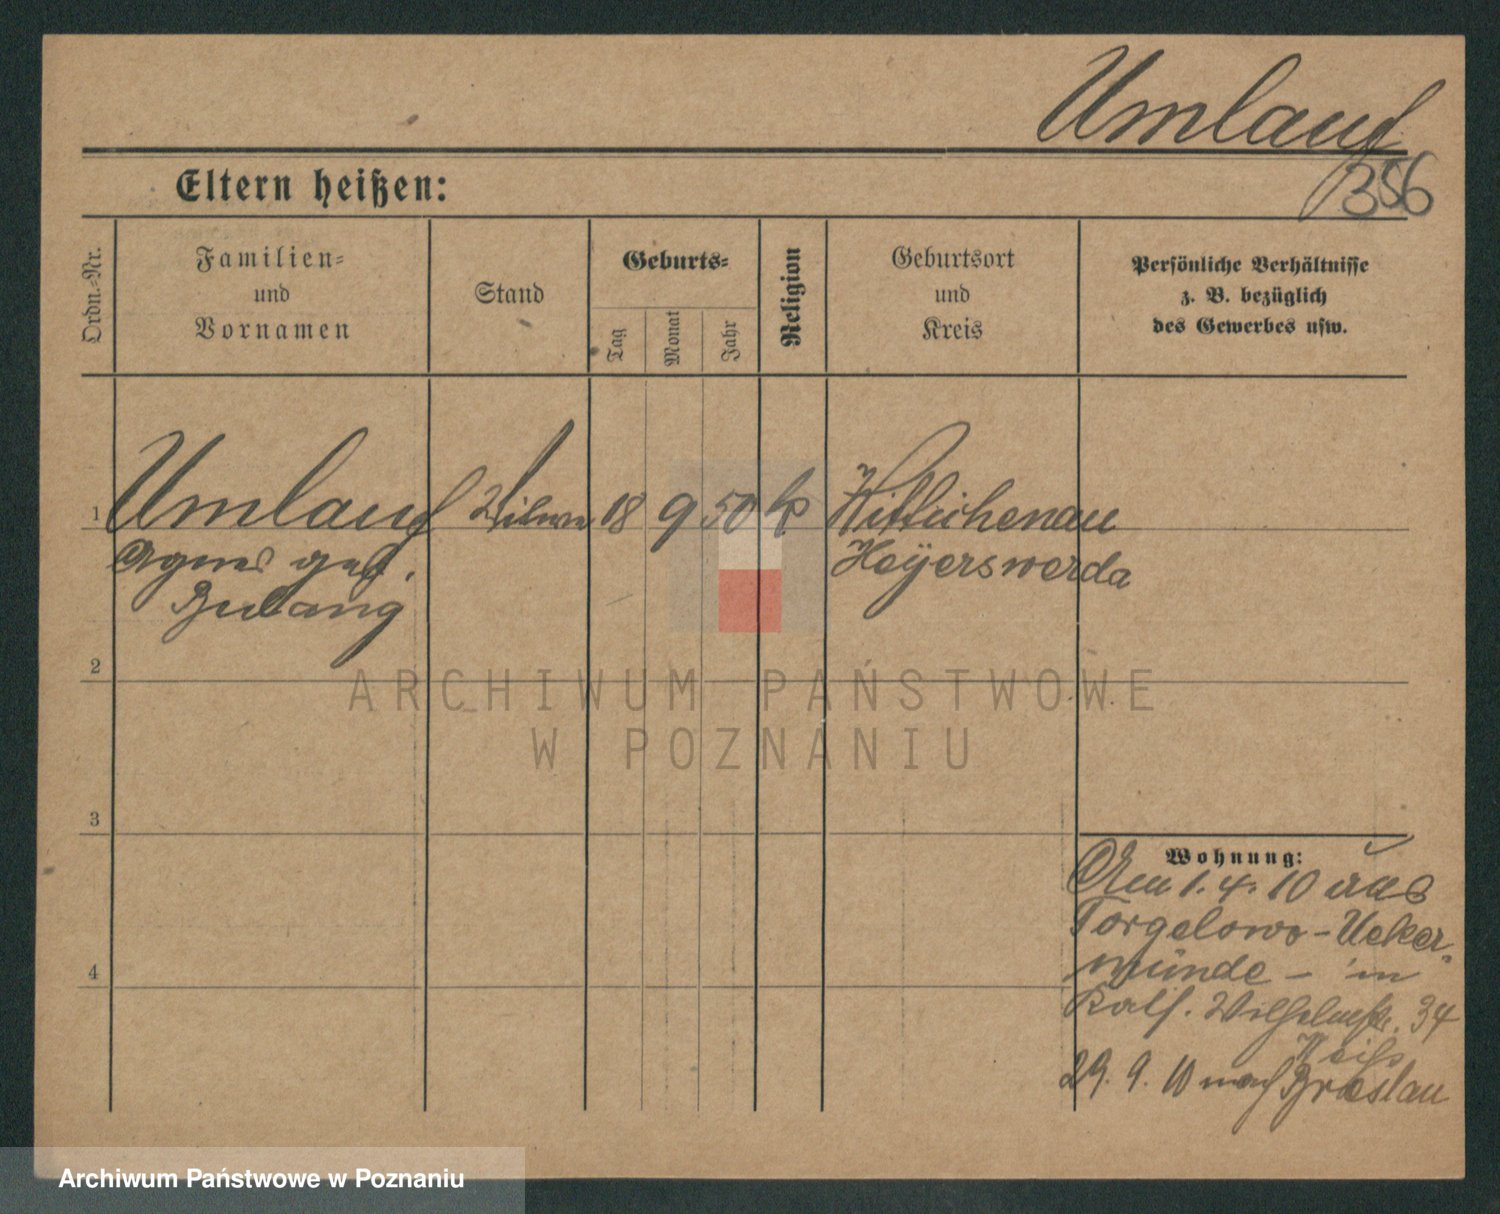 Umlauf
356
Eltern heißen:
Ordn.-Nr.
Familien-
und
Vornamen
Stand
Geburts-
Tag
Monat
Jahr
Religion
Geburtsort
und
Kreis
Persönliche Verhältnisse
z. B. bezüglich
des Gewerbes usw.
1
Umlauf
Witwe
18
9
50
k
Wittichenau
Agnes geb.
Hoyerswerda
2
ARCHIWUM PAŃSTWOWE
W POZNANIU
3
4
Wohnung:
Am 1. 4. 10 aus
Torgelowo - Uecker-
münde - in
Wilhelmstr. 34
Weiß
29. 9. 10 nach Breslau
Archiwum Państwowe w Poznaniu